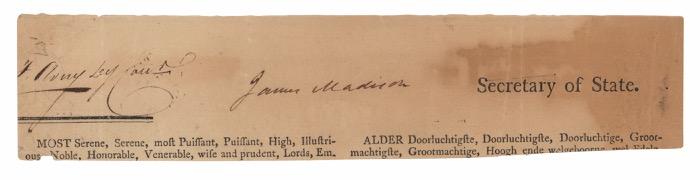 James Madison
Secretary of State.
MOST Serene, Serene, moſt Puiſſant, Puiſſant, High, Illuſtri-
ous Noble, Honorable, Venerable, wiſe and prudent, Lords, Em.
ALDER Doorluchtigſte, Doorluchtigſte, Doorluchtige, Groot-
machtigſte, Grootmachtige, Hoogh ende welgeboorne, wel Edele